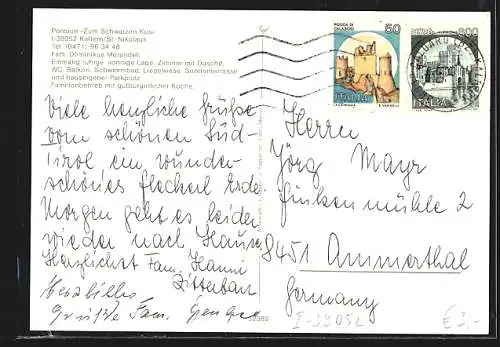 Pension „Zum Schwarzen Kus“
I-39052 Kaltern/St. Nikolaus
Tel. (0471) 96 34 48
Fam. Dominikus Morandell
Einmalig ruhige sonnige Lage, Zimmer mit Dusche,
WC, Balkon, Schwimmbad, Liegewiese, Sonnenterrasse
und hauseigener Parkplatz
Familienbetrieb mit gutbürgerlicher Küche.
Viele herzliche Grüße
vom schönen Süd-
tirol ein wunder-
schönes fleckerl Erde
Morgen geht es leider
wieder nach Hause
Herzlichst Fam. Hanni
Herzliche
Grüße Fam.
ROCCA DI
CALASCIO
50
ITALIA
ITALIA
Herrn
Jörg Mayr
Finkenmühle 2
8451 Ammerthal
Germany
I-39052
€ 3,-